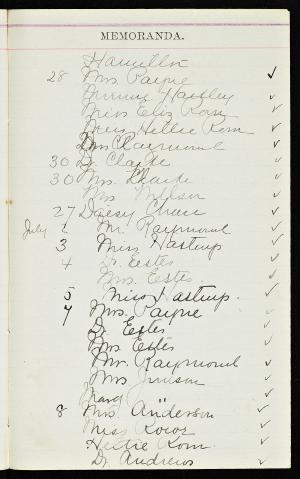 MEMORANDA.
Hamilton
28 Mrs. Payne
Hartley
Miss Eliz Korn
Miss Hettie Korn
Mrs Claymond
30 Dr Clarke
30 Mrs. Clarke
Mrs Wilson
27 Daisy Chase
July 2 Mr. Raymond
3 Miss Hastup
4 Dr. Estes
Mrs. Estes
5 Miss Hastup.
7 Mrs. Payne
Dr Estes
Mrs Estes
Mr. Raymond
Mrs
Mary
8 Mrs. Anderson
Miss
Hettie Korn.
Dr. Andrews